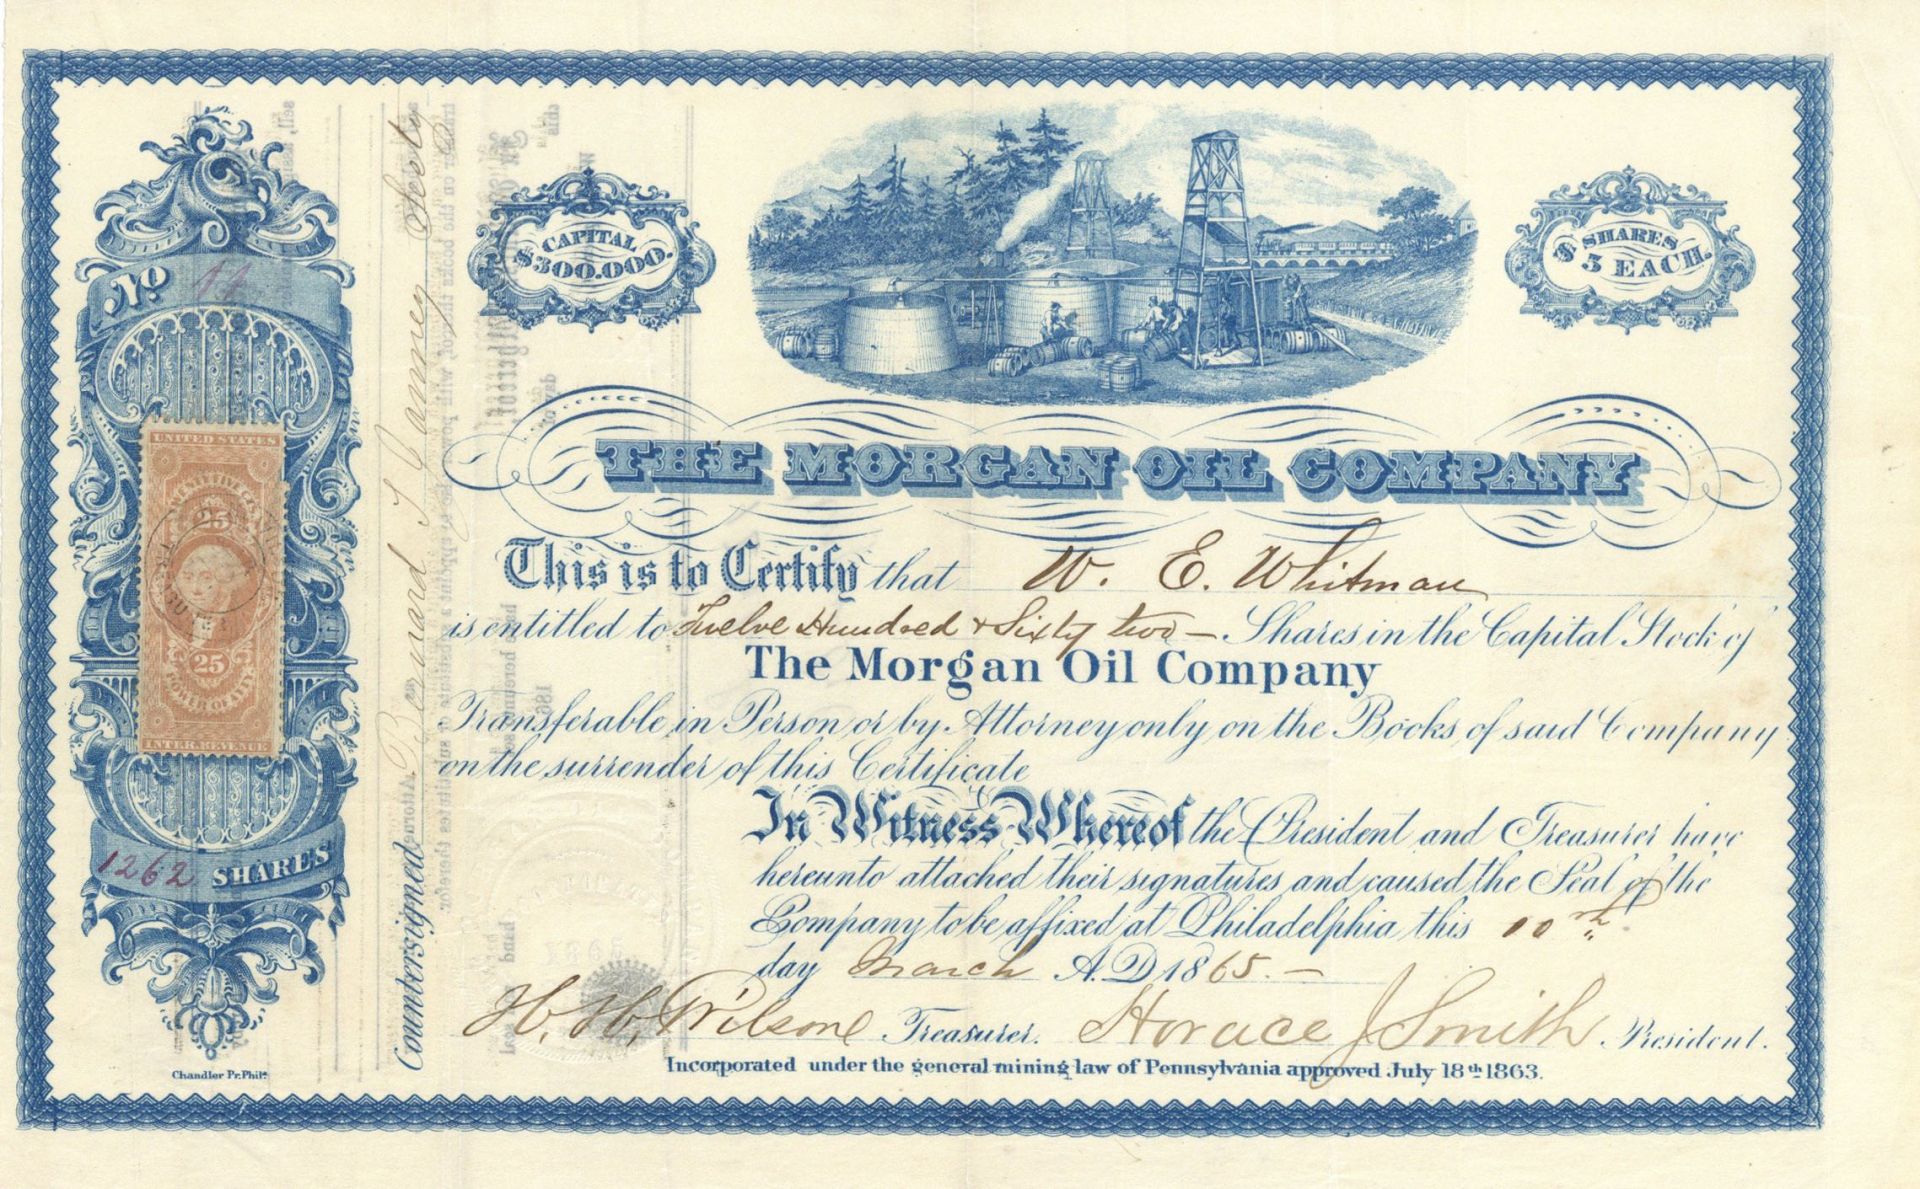 No 11
CAPITAL
$300.000.
SHARES
$5 EACH.
THE MORGAN OIL COMPANY
This is to Certify that W. E. Whitman
is entitled to Twelve Hundred & Sixty two — Shares in the Capital Stock of
The Morgan Oil Company
Transferable in Person or by Attorney only on the Books of said Company
on the surrender of this Certificate
In Witness Whereof the President and Treasurer have
hereunto attached their signatures and caused the Seal of the
Company to be affixed at Philadelphia this 10th
day March A.D. 1865. —
H. H. Treasurer. Horace J Smith President.
Incorporated under the general mining law of Pennsylvania approved July 18th 1863.
UNITED STATES
25
25
POWER OF ATTY
INTER. REVENUE
1262 SHARES
Chandler Pr. Phila
Countersigned Bernard Janney Secty